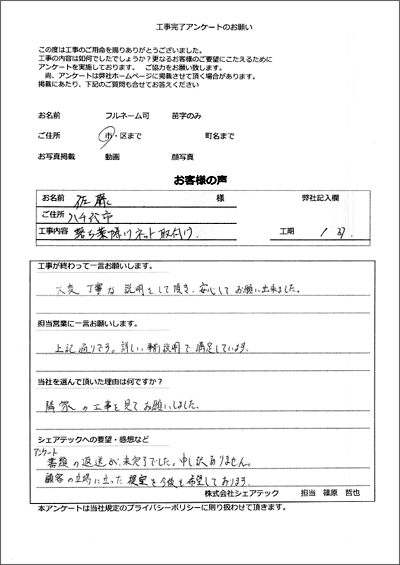 工事完了アンケートのお願い
この度は工事のご用命を賜りありがとうございました。
工事の内容は如何でしたでしょうか？更なるお客様のご要望にこたえるために
アンケートを実施しております。　ご協力をお願い致します。
尚、アンケートは弊社ホームページに掲載させて頂く場合があります。
掲載にあたり、下記のご質問も合せてお答えください
お名前　フルネーム可　苗字のみ
ご住所　市・区まで　町名まで
お写真掲載　動画　顔写真
お客様の声
お名前　佐藤　様　弊社記入欄
ご住所　八千代市
工事内容　落ち葉除けネット取付け　工期　1　日
工事が終わって一言お願いします。
大変丁寧な説明をして頂き、安心してお願い出来ました。
担当営業に一言お願いします。
上記通りです。詳しい事前説明で満足しています。
当社を選んで頂いた理由は何ですか？
隣家の工事を見てお願いしました。
シェアテックへの要望・感想など
アンケート
書類の返送が、未完了でした。申し訳ありません。
顧客の立場に立った提案を今後も希望しております。
株式会社シェアテック　担当　篠原　哲也
本アンケートは当社規定のプライバシーポリシーに則り扱わせて頂きます。